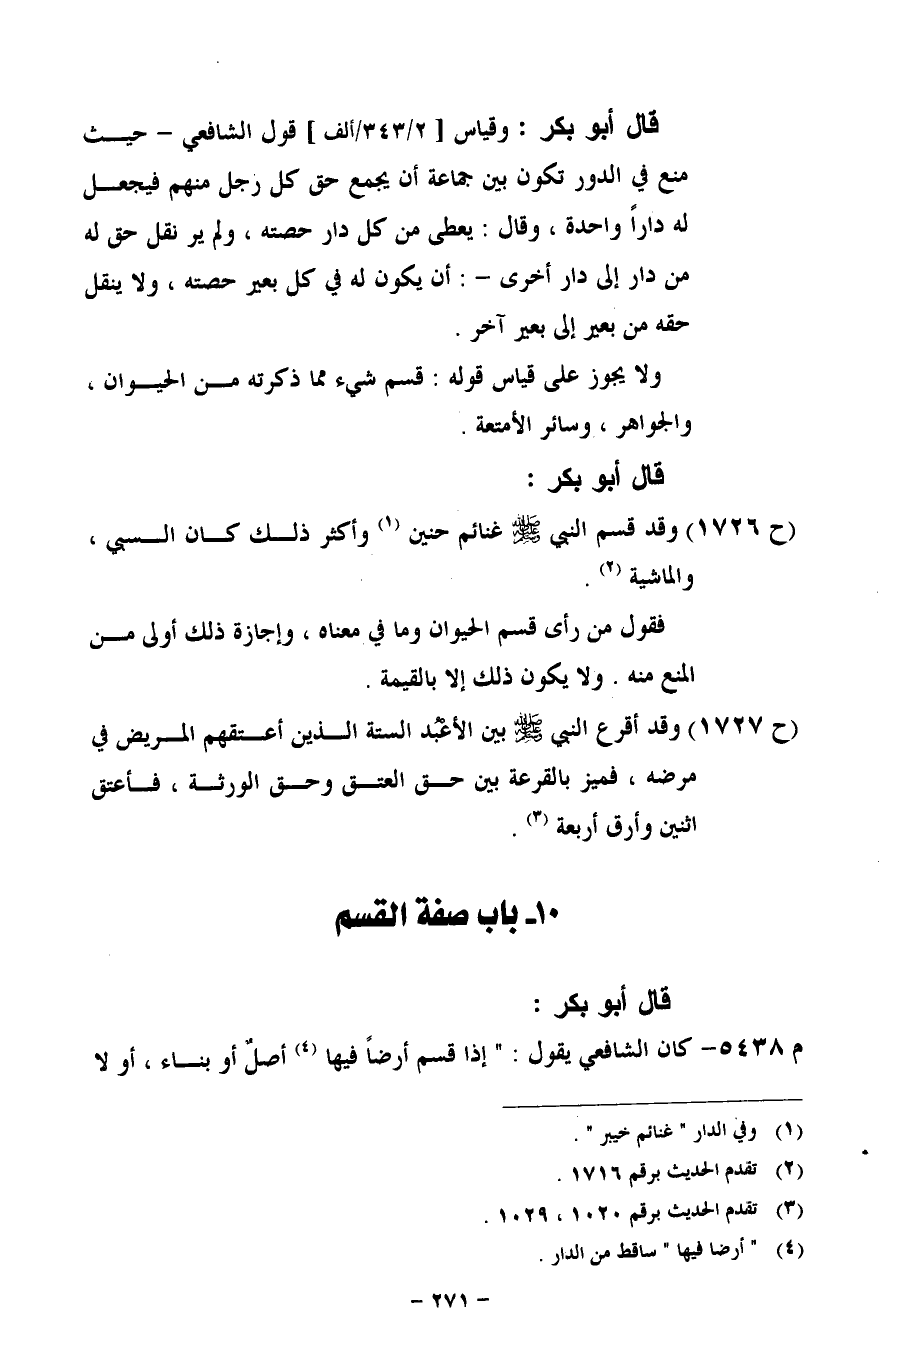 قال أبو بكر : وقياس [ ٣٤٣/٢/ألف ] قول الشافعي – حيـــث
منع في الدور تكون بين جماعة أن يجمع حق كل رجل منهم فيجعـــل
له داراً واحدة ، وقال : يعطى من كل دار حصته ، ولم ير نقل حق له
من دار إلى دار أخرى – : أن يكون له في كل بعير حصته ، ولا ينقل
حقه من بعير إلى بعير آخر .
ولا يجوز على قياس قوله : قسم شيء مما ذكرته مـــن الحيـــوان ،
والجواهر ، وسائر الأمتعة .
قال أبو بكر :
(ح ١٧٢٦) وقد قسم النبي ﷺ غنائم حنين (١) وأكثر ذلـــك كـــان الـــسبي ،
والماشية (٢) .
فقول من رأى قسم الحيوان وما في معناه ، وإجازة ذلك أولى مـــن
المنع منه . ولا يكون ذلك إلا بالقيمة .
(ح ١٧٢٧) وقد أقرع النبي ﷺ بين الأعْبُد الستة الـــذين أعـــتقهم المـــريض في
مرضه ، فميز بالقرعة بين حـــق العتـــق وحـــق الورثـــة ، فـــأعتق
اثنين وأرق أربعة (٣) .
١٠ـ باب صفة القسم
قال أبو بكر :
م ٥٤٣٨– كان الشافعي يقول : " إذا قسم أرضاً فيها (٤) أصلٌ أو بنـــاء ، أو لا
(١) وفي الدار " غنائم خيبر " .
(٢) تقدم الحديث برقم ١٧١٦ .
(٣) تقدم الحديث برقم ١٠٢٠ ، ١٠٢٩ .
(٤) " أرضا فيها " ساقط من الدار .
– ٢٧١ –